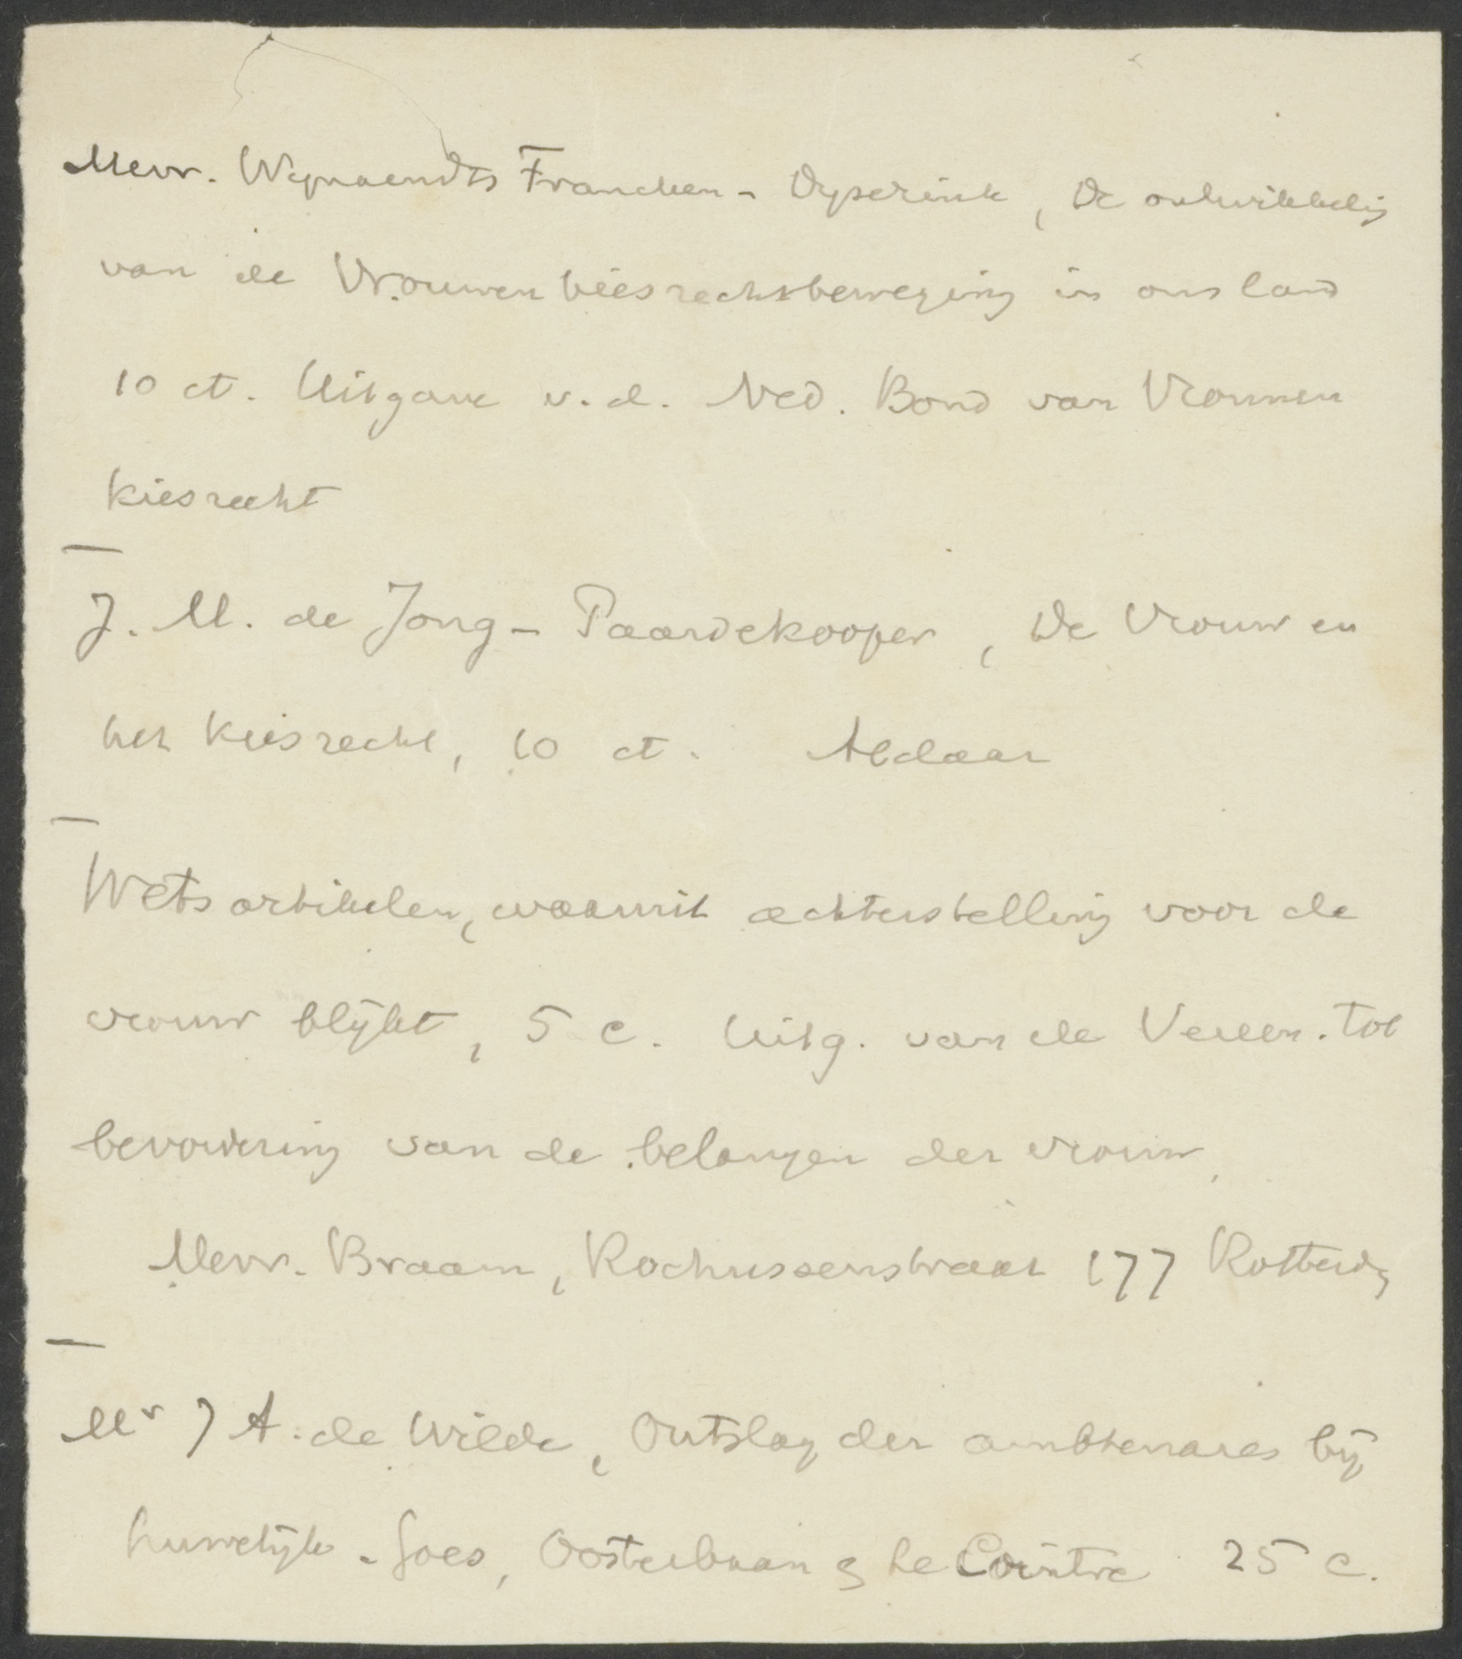 Mevr. Wijnaendts Francken - Dyserinck, De ontwikkeling
van de Vrouwenkiesrechtsbeweging in ons land
10 ct. Uitgave v.d. Ned. Bond van Vrouwen
kiesrecht
J. M. de Jong - Paardekooper, De Vrouw en
het kiesrecht, 10 ct. Aldaar
Wetsartikelen, waaruit achterstelling voor de
vrouw blijkt, 5 c. Uitg. van de Vereen. tot
bevordering van de belangen der vrouw,
Mevr. Braam, Rochussenstraat 177 Rotterdam
Mr J A. de Wilde, Ontslag der ambtenares bij
huwelijk - Goes, Oosterbaan & Le Cointre 25 c.